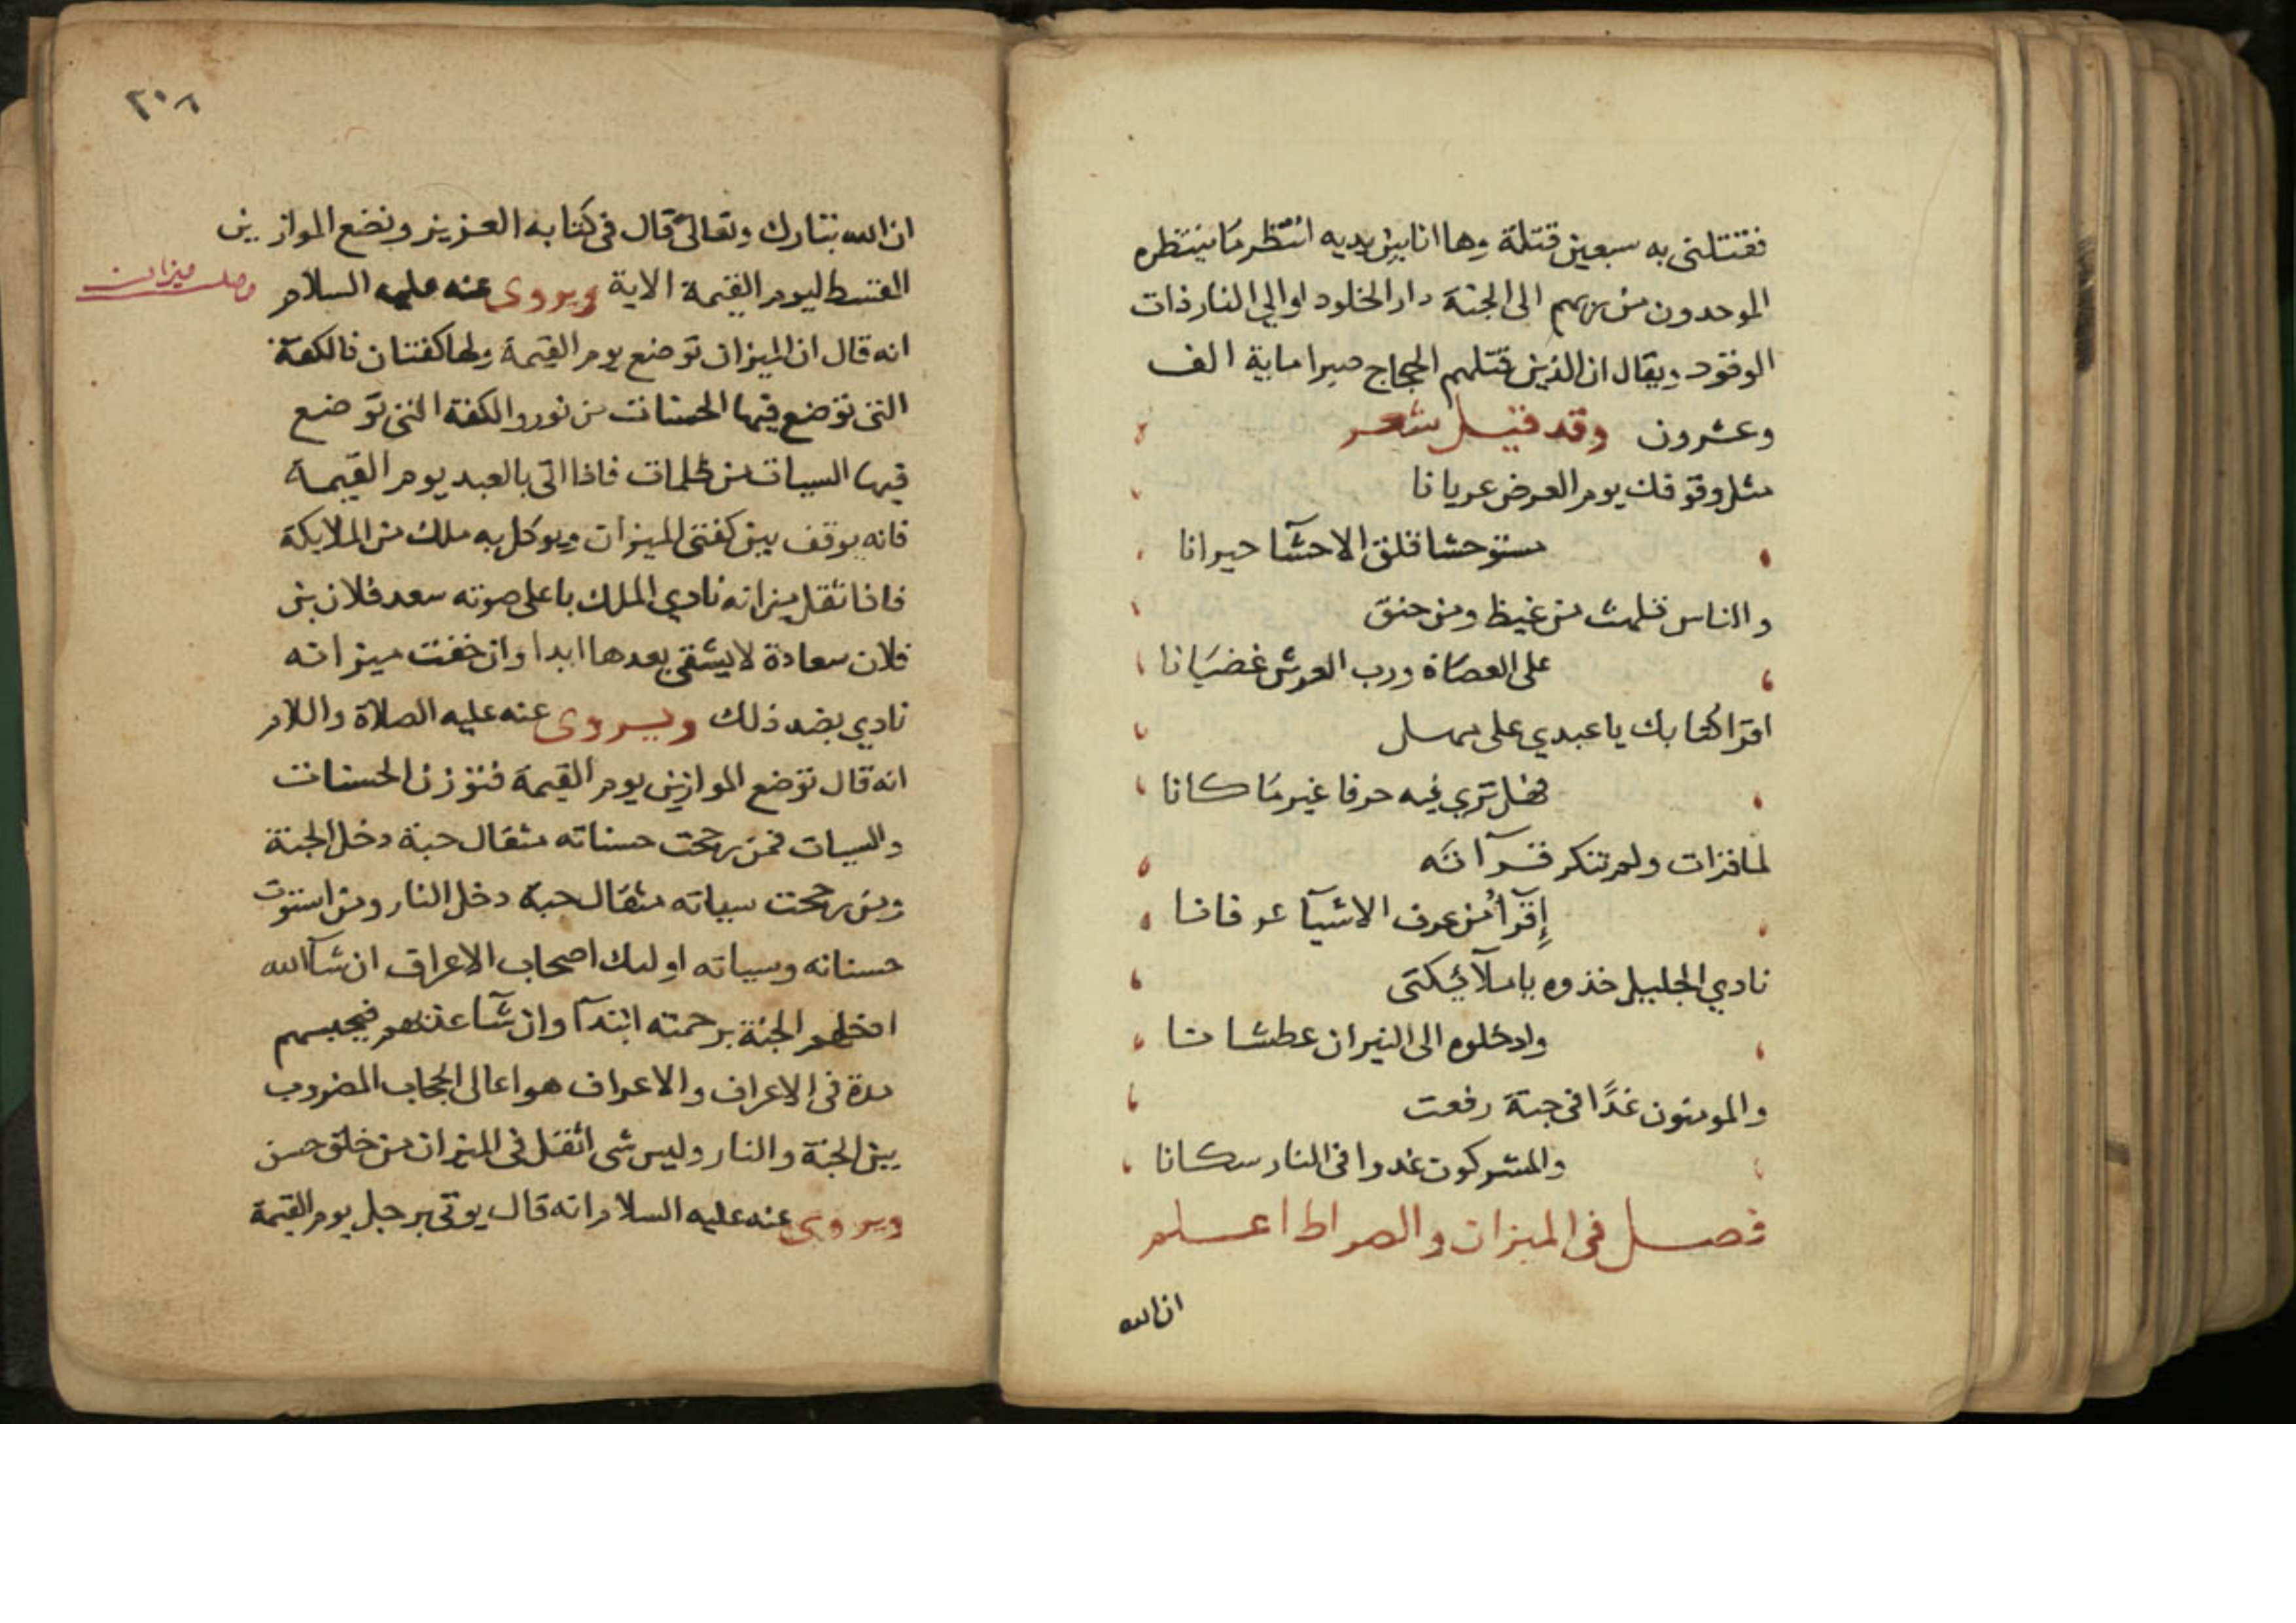 فقتلنى به سبعين قتلة وها انا بين يديه انتظر ما ينتظره
الموحدون من ربهم الى الجنة دار الخلود او الي النار ذات
الوقود ويقال ان الذين قتلهم الحجاج صبرا ماية الف
وعشرون وقد قيل شعر
مثل وقوفك يوم العرض عريانا
مستوحشا قلق الاحشآ حيرانا
والناس تلهث من غيظ ومن حنق
على العصاة ورب العرش غضبانا
اقرا كتابك يا عبدي على مهل
فهل تري فيه حرفا غير ما كانا
لما قرات ولم تنكر قرآنه
إقرأ من عرف الاشيآ عرفانا
نادي الجليل خذوه يا ملآئكتى
وادخلوه الى النيران عطشانا
والمومنون غدًا فى جنة رفعت
والمشركون غدوا فى النار سكانا
فصل فى الميزان والصراط اعلم
ان الله
٢٠٨
ان الله تبارك وتعالى قال فى كتابه العزيز ونضع الموازين
القسط ليوم القيمة الاية ويروى عنه عليه السلام
ميزان
انه قال ان الميزان توضع يوم القيمة ولها كفتان فالكفة
التى توضع فيها الحسنات من نور والكفة التى توضع
فيها السيات من ظلمات فاذا اتى بالعبد يوم القيمة
فانه يوقف بين كفتى الميزان ويوكل به ملك من الملايكة
فاذا ثقل ميزانه نادي الملك باعلى صوته سعد فلان بن
فلان سعادة لا يشقى بعدها ابدا وان خفت ميزانه
نادي بضد ذلك ويروى عنه عليه الصلاة والسلام
انه قال توضع الموازين يوم القيمة فتوزن الحسنات
والسيات فمن رجحت حسناته مثقال حبة دخل الجنة
ومن رجحت سياته مثقال حبة دخل النار ومن استوت
حسناته وسياته اوليك اصحاب الاعراف ان شآ الله
ادخلهم الجنة برحمته ابتدآ وان شآ عذبهم فيحبسهم
مدة فى الاعراف والاعراف هو اعالى الحجاب المضروب
بين الجنة والنار وليس شى اثقل فى الميزان من خلق حسن
ويروى عنه عليه السلام انه قال يوتى برجل يوم القيمة